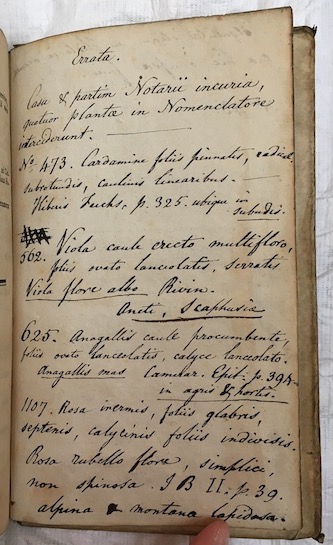 Errata.
Casu & partim Notarii incuria,
quatuor plantæ in Nomenclatore
interciderunt.
No. 473. Cardamine foliis pinnatis, radical.
subrotundis, caulinis linearibus.
Fuchs. p. 325. ubique in
subudis.
562. Viola caule erecto multifloro,
foliis ovato lanceolatis, serratis
Viola flore albo Rivin.
Aneti, Scaphusiæ
625. Anagallis caule procumbente,
foliis ovato lanceolatis, calyce lanceolato.
Anagallis mas Camerar. Epit. p. 394.
in agris & hortis.
1107. Rosa inermis, foliis glabris,
septenis, calycinis foliis indivisis.
Rosa rubello flore, simplici,
non spinosa. J B II. p. 39.
alpina & montana lapidosa.